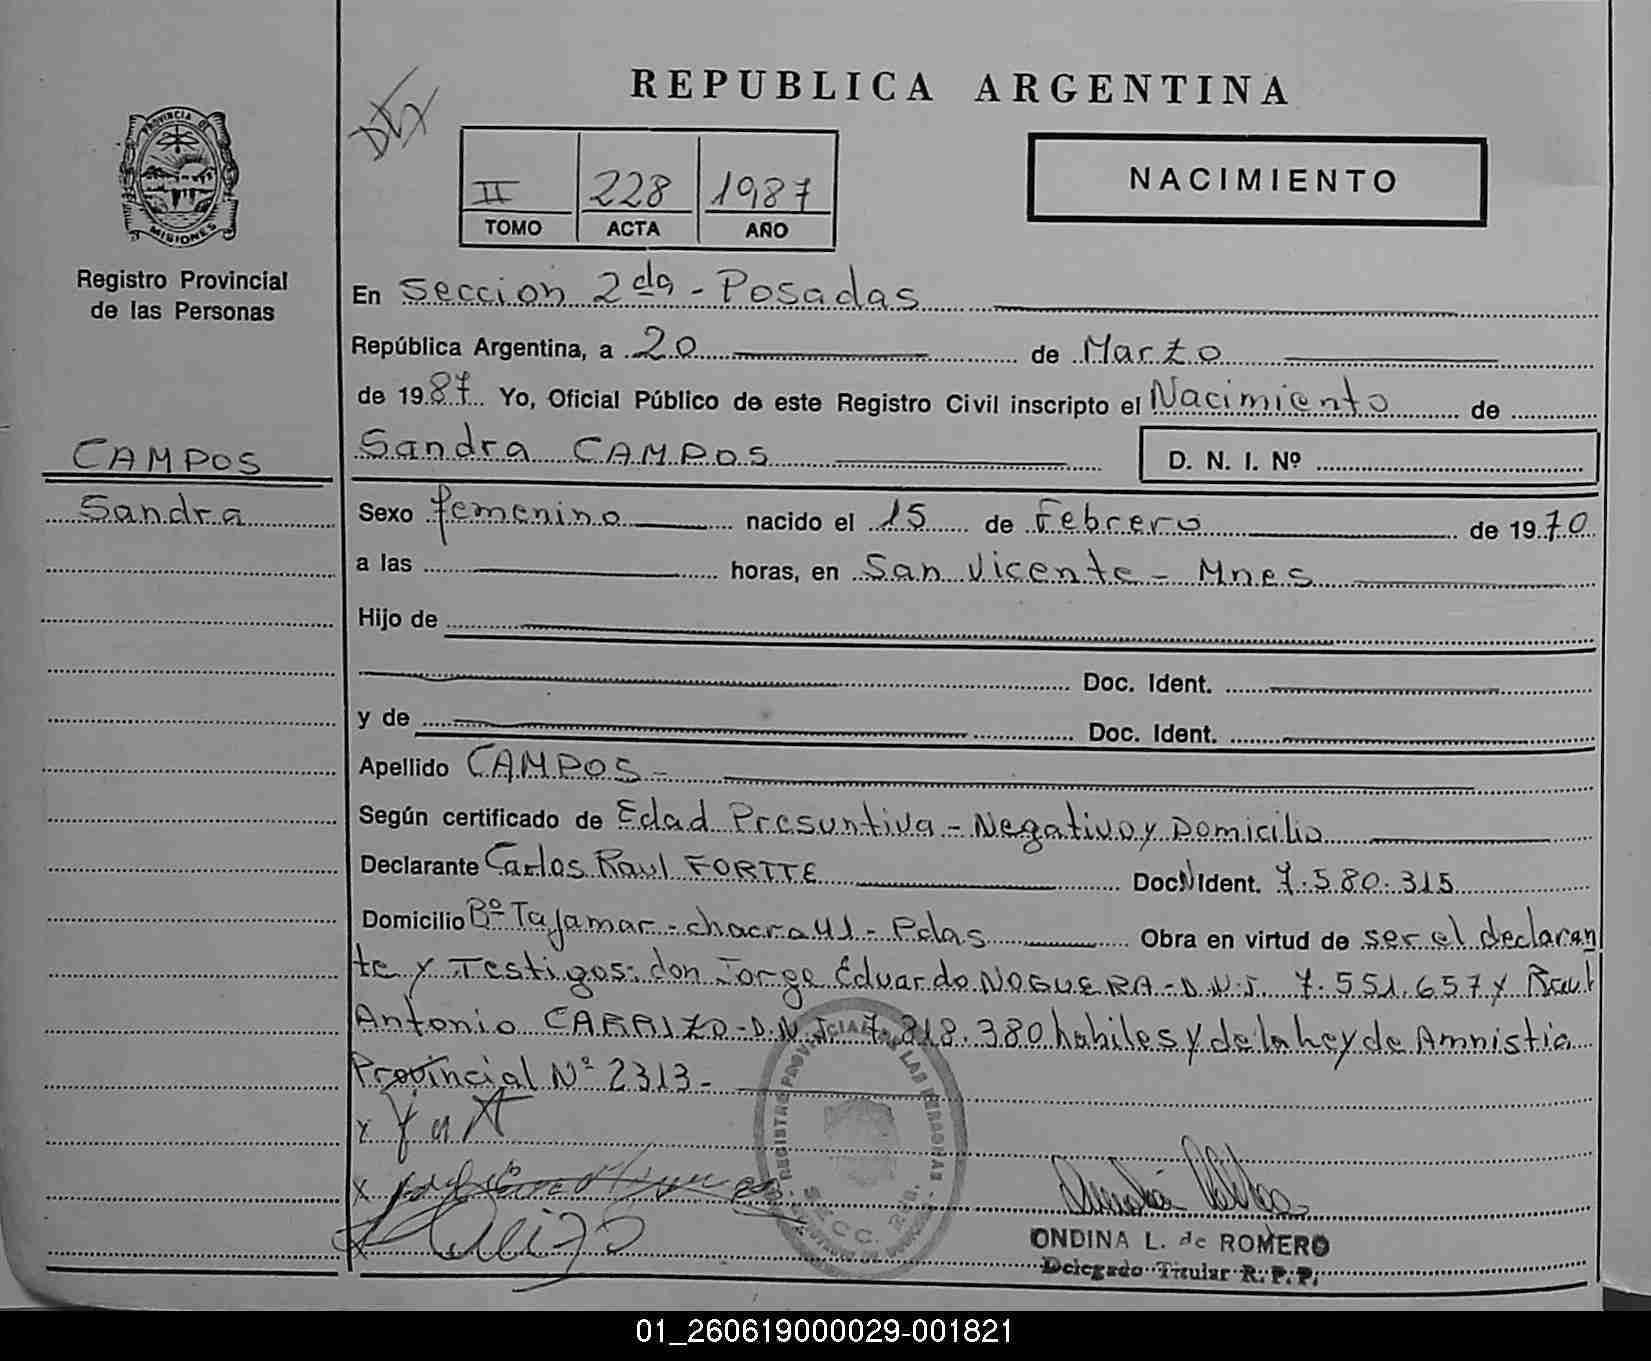 REPUBLICA ARGENTINA
PROVINCIA DE
MISIONES
Registro Provincial
de las Personas
II 228 1987
TOMO ACTA AÑO
NACIMIENTO
En Seccion 2da - Posadas
República Argentina, a 20 de Marzo
de 1987 Yo, Oficial Público de este Registro Civil inscripto el Nacimiento de
Sandra CAMPOS D. N. I. Nº
CAMPOS
Sandra
Sexo femenino nacido el 15 de Febrero de 1970
a las horas, en San Vicente - Mnes
Hijo de
Doc. Ident.
y de Doc. Ident.
Apellido CAMPOS -
Según certificado de Edad Presuntiva - Negativo y Domicilio
Declarante Carlos Raul FORTTE Doc Ident. 7.580.315
Domicilio Bº Tajamar - chacra 41 - Pdas Obra en virtud de ser el declaran
te y Testigos: don Jorge Eduardo NOGUERA - D.N.I. 7.551.657 y Raul
Antonio CARRIZO - D.N.I. 7.818.380 habiles y de la Ley de Amnistia
Provincial Nº 2313 -
REGISTRO PROVINCIAL DE LAS PERSONAS
ONDINA L. de ROMERO
Delegado Titular R. P. P.
01_260619000029-001821